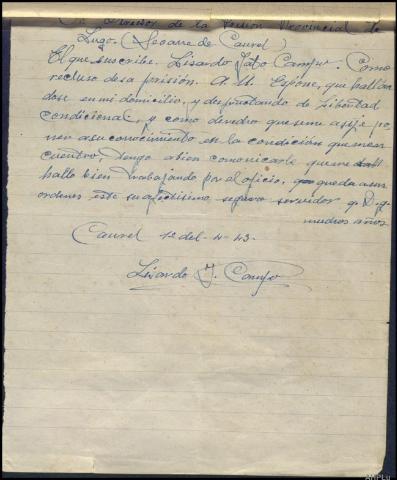 Sr Director de la Prision Provincial de
Lugo. (Seoane de Caurel)
El que suscribe. Lisardo Campo. Como
recluso desa prisión. A. U. Espone, que hallan
dose en mi domicilio, y desfrutando de Libertad
condicional, y como derecho que se me asije po
ner a su conocimiento en la condición que me en
cuentro, tengo a bien comonicarle que me
hallo bien trabajando por el oficio, queda a sus
ordenes este su afectisimo seguro servidor q. D. g.
muchos años
Caurel 1º del-4-43.
Lisardo J. Campo
AHPLu